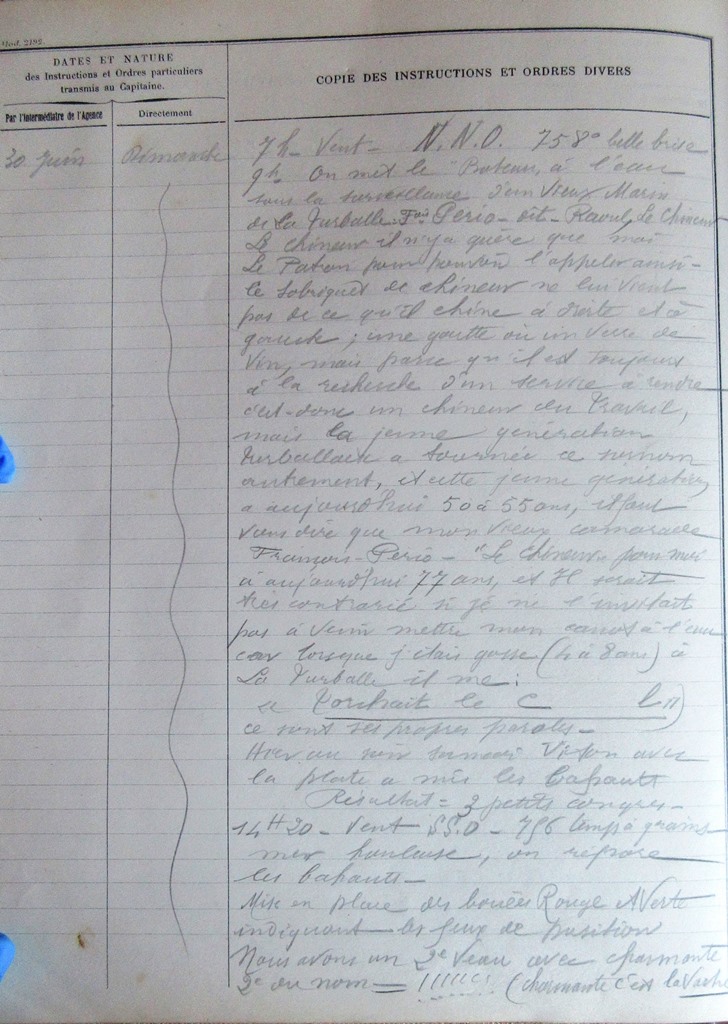 Mod. 2195.
DATES ET NATURE
des Instructions et Ordres particuliers
transmis au Capitaine.
Par l'Intermédiaire de l'Agence
Directement
COPIE DES INSTRUCTIONS ET ORDRES DIVERS
30 Juin Dimanche
7h - Vent - N.N.O. 758° belle brise
9h On met le Bateau, à l'eau
sous la surveillance d'un Vieux Marin
de La Turballe. Fois Perio - dit - Raoul, Le Chineur
Le chineur il n'y a guère que moi
Le Patron pour pouvoir l'appeler ainsi -
le sobriquet de chineur ne lui vient
pas de ce qu'il chine à droite et à
gauche ; une goutte ou un Verre de
Vin, mais parce qu'il est toujours
à la recherche d'un service à rendre
c'est-donc un chineur du travail,
mais la jeune génération
turballaise a tournée ce surnom
autrement, et cette jeune génération,
a aujourd'hui 50 à 55 ans, il faut
vous dire que mon vieux camarade
François - Perio - "Le Chineur" pour moi
à aujourd'hui 77 ans, et Il serait
très contrarié si je ne l'invitait
pas à venir mettre mon canot à l'eau
car lorsque j'étais gosse (4 à 8 ans) à
La Turballe il me :
Torchait le C
ce sont ses propres paroles -
Hier au soir samedi avec
la plate a mis les bahauts
Résultat = 2 petits congres -
14H20 - Vent S.S.O - 756 temps à grains
mer houleuse, on repose
les bahauts -
Mise en place des bouées Rouge et Verte
indiquant les feux de position
Nous avons un 2e Veau avec charmante
2e du nom = !!!!!! (charmante c'est la Vache